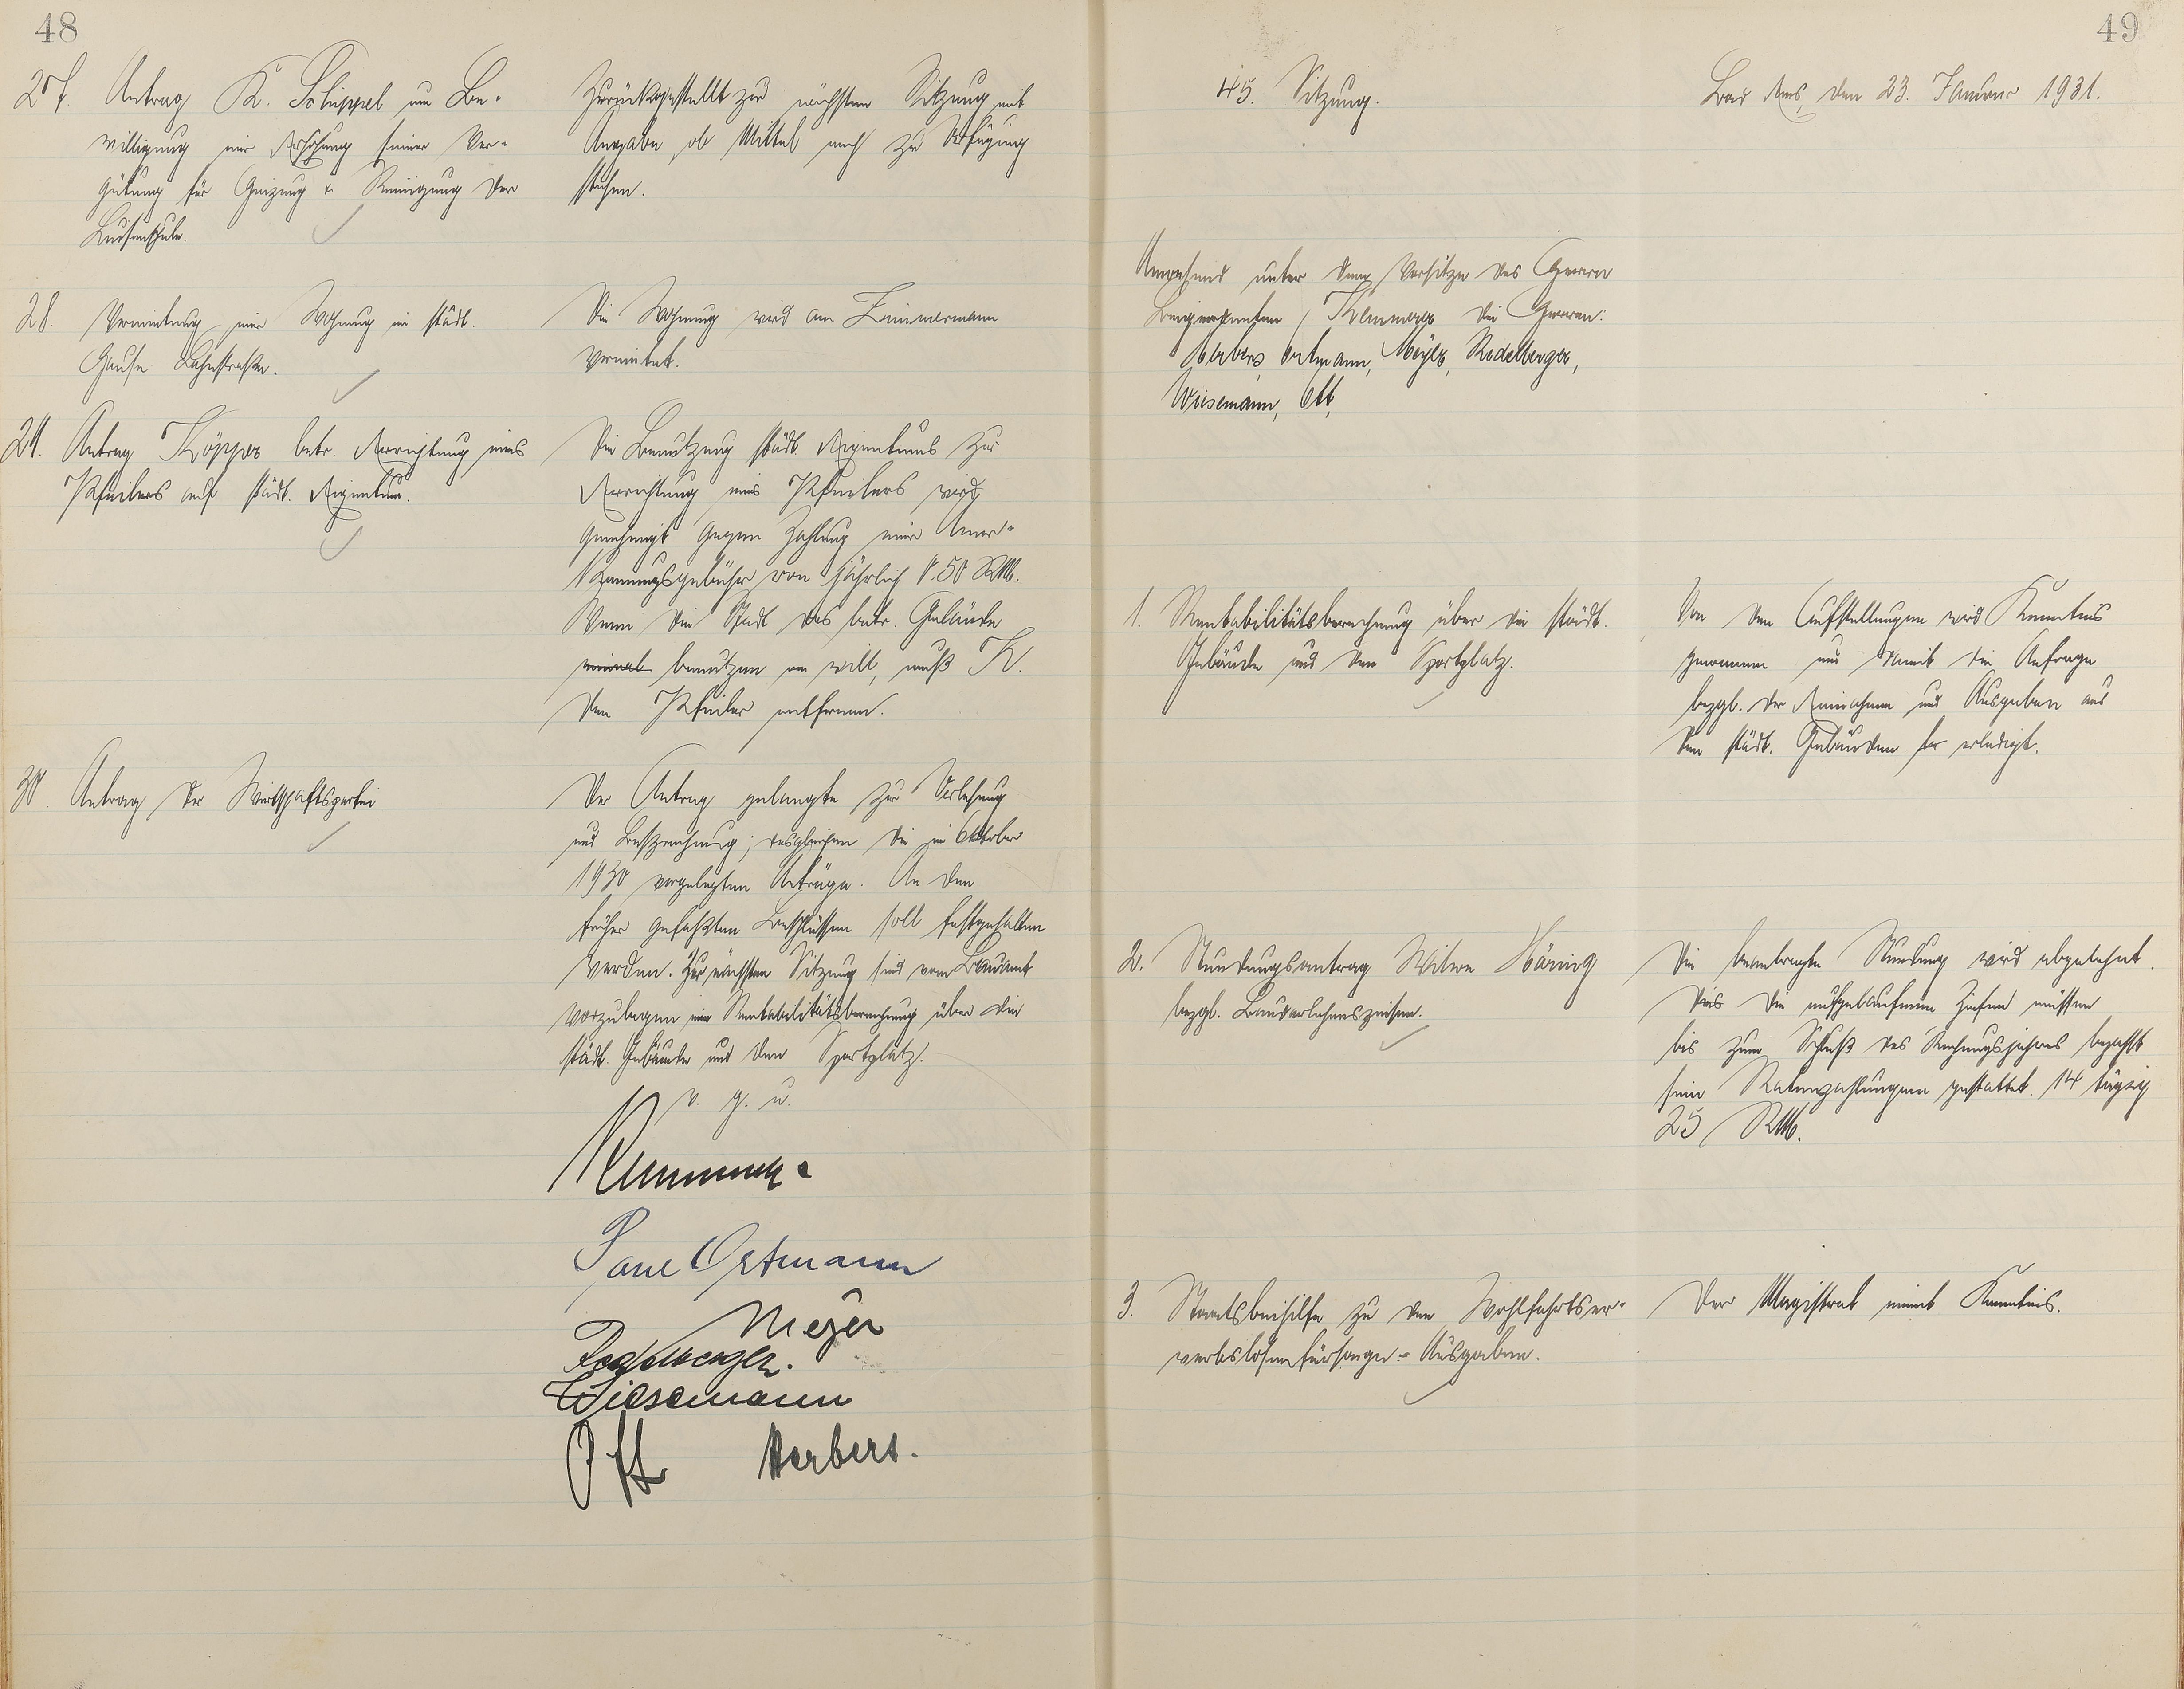 48
27. Antrag K. Schüppel um Be-
willigung einer Erhöhung seiner Ver-
gütung für Heizung & Reinigung der
Luisenschule.
Zurückgestellt zur nächsten Sitzung mit
Angabe, ob Mittel noch zu Verfügung
stehen.
28. Vermietung einer Wohnung im städt.
Hause Lahnstraße.
Die Wohnung wird an Zimmermann
vermietet.
29. Antrag Köpper betr. Errichtung eines
Pfeilers auf städt. Eigentum.
Die Benutzung städt. Eigentums zur
Errichtung eines Pfeilers wird
genehmigt gegen Zahlung einer Aner-
kennungsgebühr von jährlich 0.50 RM.
Wenn die Stadt das betr. Gelände
einmal benutzen will, muß K.
den Pfeiler entfernen.
30. Antrag der Wirtschaftspartei
Der Antrag gelangte zur Verlesung
und Besprechung; desgleichen die im Oktober
1930 vorgelegten Anträge. An den
früher gefaßten Beschlüssen soll festgehalten
werden. Zur nächsten Sitzung sind vom Bauamt
vorzulegen eine Rentabilitätsberechnung über die
städt. Gebäude und den Sportplatz.
v. g. u.
Paul Ortmann
Meyer
Redelberger.
Wiesemann
Ott Herbers.
49
45. Sitzung.
Bad Ems, den 23. Januar 1931.
Anwesend unter dem Vorsitze des Herrn
Beigeordneten die Herren:
Herbers, Ortmann, Meyer, Redelberger,
Wiesemann, Ott,
1. Rentabilitätsberechnung über die städt.
Gebäude und den Sportplatz.
Von den Aufstellungen wird Kenntnis
genommen und damit die Anfrage
bezgl. der Einnahmen und Ausgaben aus
den städt. Gebäuden für erledigt.
2. Stundungsantrag Witwe Häring
bezgl. Baudarlehenszinsen.
Die beantragte Stundung wird abgelehnt.
die aufgelaufenen Zinsen müssen
bis zum Schluß des Rechnungsjahres bezahlt
sein Ratenzahlungen gestattet. 14 tägig
25 RM.
3. Staatsbeihilfe zu den Wohlfahrtser-
werbslosenfürsorge-Ausgaben.
Der Magistrat nimmt Kenntnis.